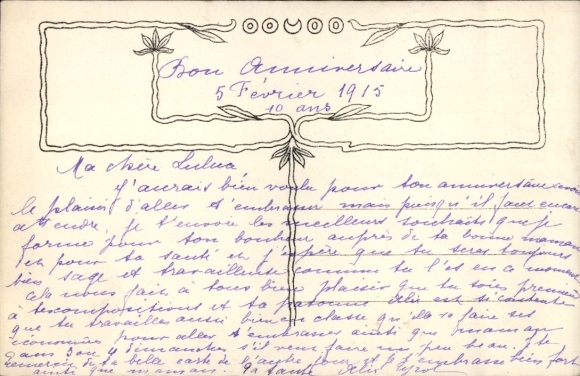 Bon Anniversaire
5 Février 1915
10 ans
Ma chère Lulua
J'aurais bien voulu pour ton anniversaire avoir
le plaisir d'aller t'embrasser mais puisqu'il faut encore
attendre, je t'envoie les meilleurs souhaits que je
forme pour ton bonheur auprès de ta bonne maman
et pour ta santé et j'espère que tu seras toujours
bien sage et travailleuse comme tu l'es en ce moment
cela nous fait à tous bien plaisir que tu sois première
à tes compositions et ta
que tu travailles aussi bien en classe qu'elle va faire ses
économies pour aller t'embrasser ainsi que maman
dans 3 ou 4 dimanches s'il veut faire un peu beau. Je te
remercie de ta belle carte de l'autre jour et je t'embrasse bien fort
ainsi que maman. Ta tante